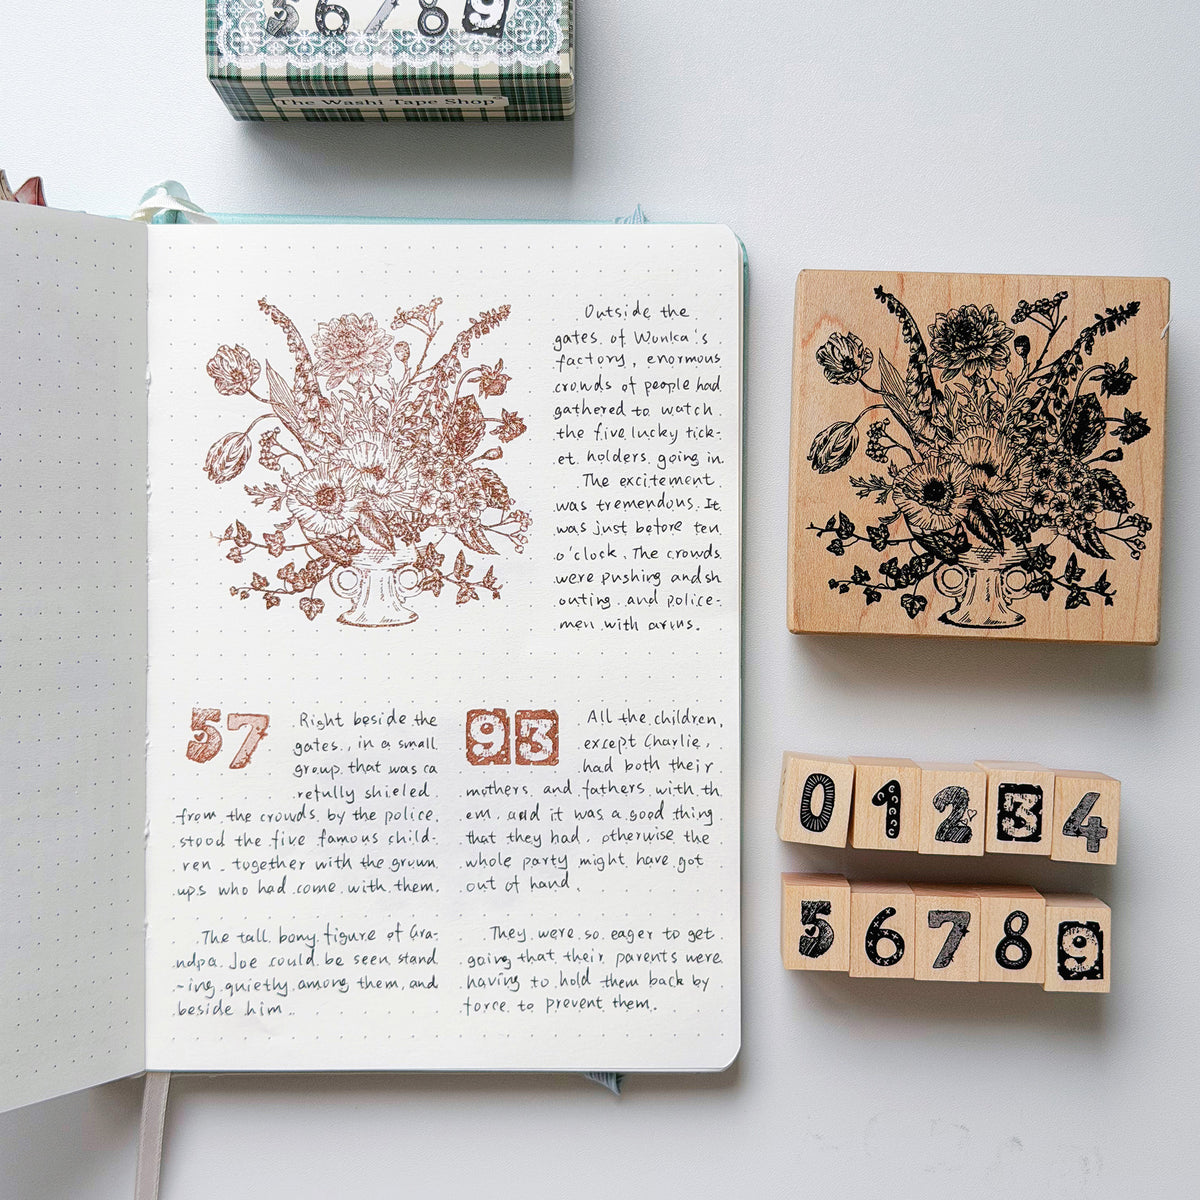 5 6 7 8 9
The Washi Tape Shop
Outside the
gates of Wonka's
factory, enormous
crowds of people had
gathered to watch
the five lucky tick-
et holders going in.
The excitement
was tremendous. It
was just before ten
o'clock. The crowds
were pushing and sh
outing and police-
men with arms.
57
Right beside the
gates, in a small
group that was ca
refully shielded
from the crowds by the police,
stood the five famous child-
ren, together with the grown
ups who had come with them.
The tall bony figure of Gra-
ndpa Joe could be seen stand
-ing quietly among them, and
beside him.
93
All the children,
except Charlie,
had both their
mothers and fathers with th
em, and it was a good thing
that they had, otherwise the
whole party might have got
out of hand.
They were so eager to get
going that their parents were
having to hold them back by
force to prevent them.
0 1 2 3 4
5 6 7 8 9